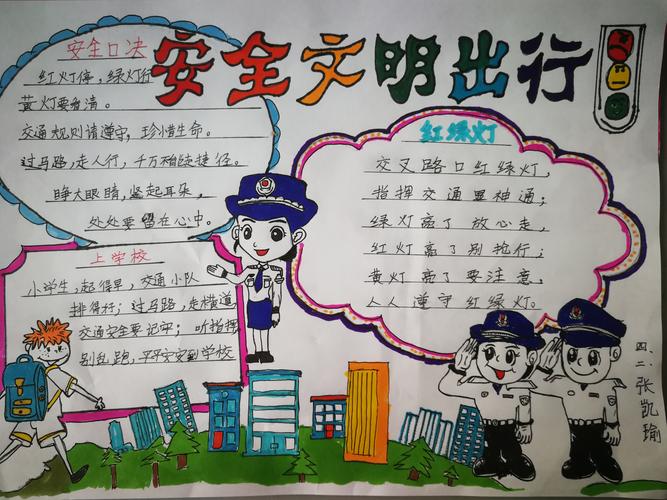 安全文明出行
安全口决
红灯停，绿灯行
黄灯要看清。
交通规则请遵守，珍惜生命。
过马路，走人行，千万别走捷径。
睁大眼睛，竖起耳朵，
处处要留在心中。
上学校
小学生，起得早，交通小队
排得好；过马路，走横道
交通安全要记牢；听指挥
别乱跑，平平安安到学校
红绿灯
交叉路口红绿灯，
指挥交通显神通；
绿灯亮了放心走，
红灯亮了别抢行；
黄灯亮了要注意，
人人遵守红绿灯。
四、二 张凯瑜